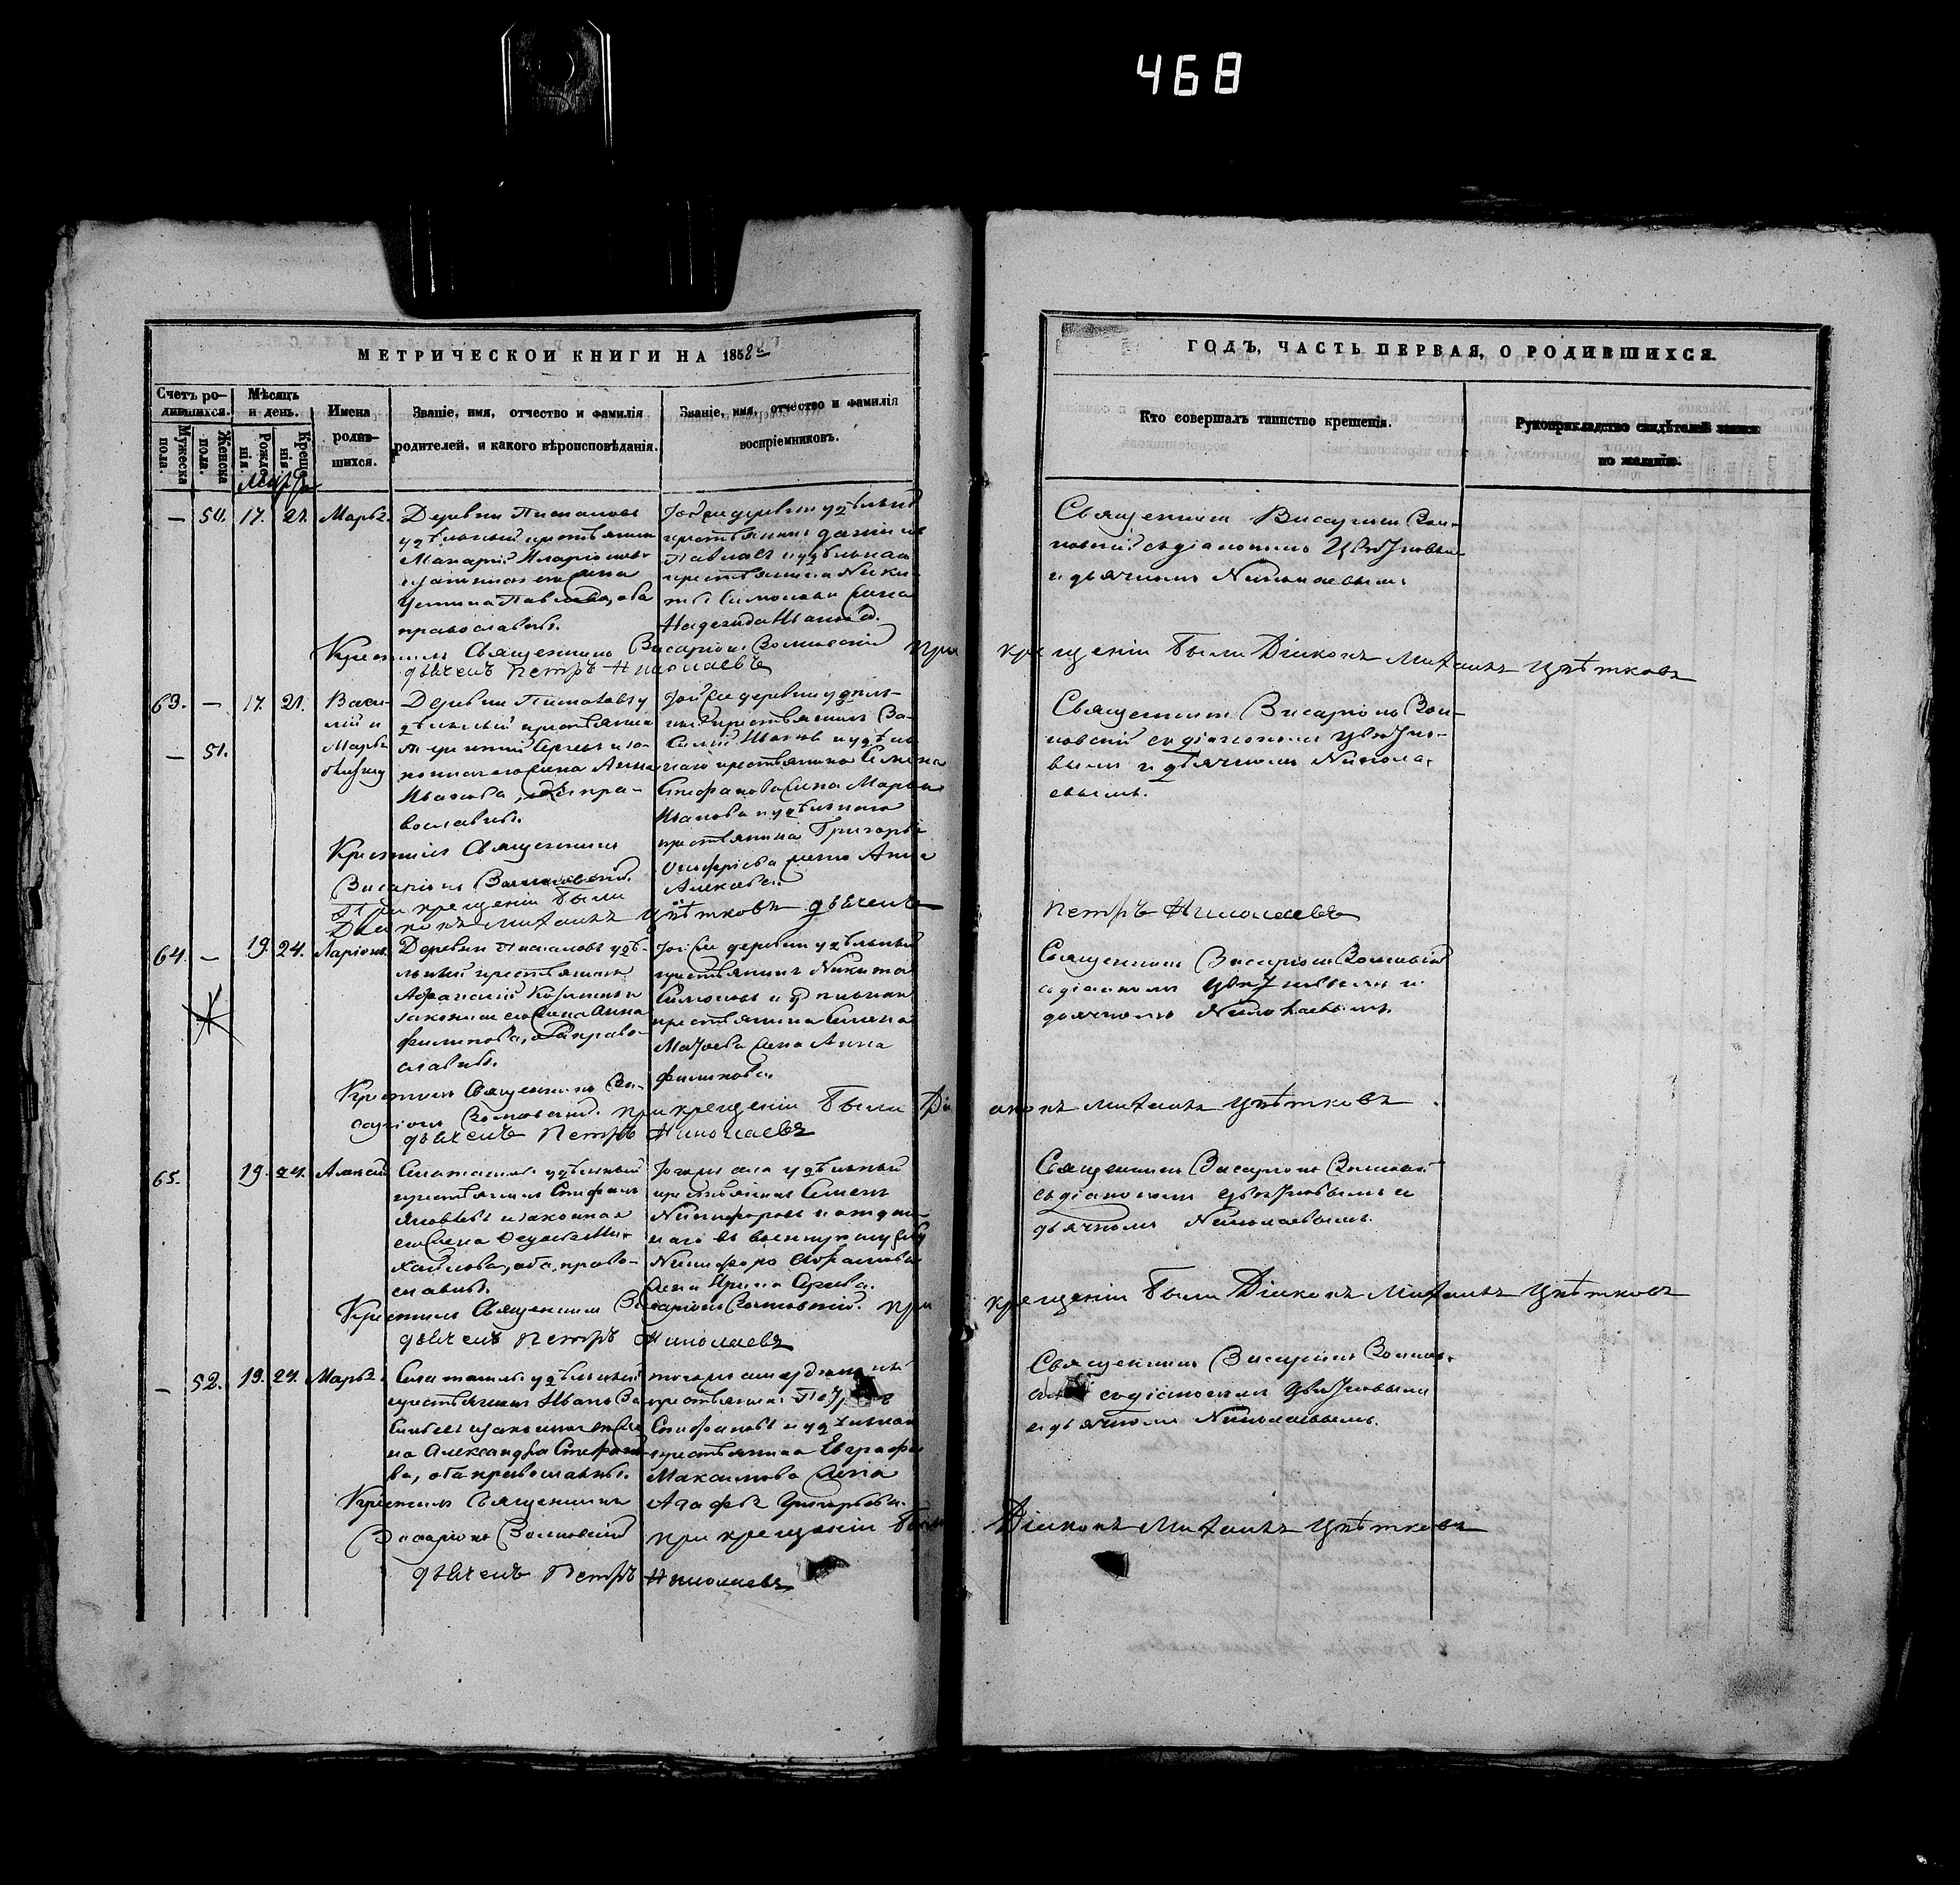 468
МЕТРИЧЕСКОЙ КНИГИ НА 1858й
ГОДЪ, ЧАСТЬ ПЕРВАЯ, О РОДИВШИХСЯ.
Счетъ ро-
дившихся.
Мужеска пола.
Женска пола.
Мѣсяцъ
и день.
Рожденія.
Крещенія.
Имена
родив-
шихся.
Званіе, имя, отчество и фамилія
родителей, и какого вѣроисповѣданія.
Званіе, имя, отчество и фамилія
воспріемниковъ.
Кто совершалъ таинство крещенія.
Рукоприкладство свидѣтелей записи
по желанію.
Марта
— 50. 17. 21. Марья.
Деревни
удѣльный крестьянинъ
Макарій Иларіоновъ
и законная его жена
Устина Павлова, оба
православные.
Той же деревни удѣльный
крестьянинъ
Павловъ и удѣльнаго
крестьянина Ники-
ты Симонова жена
Надежда Иванова.
Священникъ Висаріонъ
съ діакономъ Цвѣтковымъ
и дьячкомъ Николаевымъ.
Крестилъ Священникъ Висаріонъ при крещеніи были Діаконъ Михаилъ Цвѣтковъ
дьячекъ Петръ Николаевъ
63. — 17. 21. Васи-
лій и
— 51. Марья
близнецы
Деревни у
дѣльный крестьянинъ
Сергѣевъ и за-
конная его жена Анна
Иванова, оба пра-
вославные.
Той же деревни удѣль-
ный крестьянинъ Ва-
силій Ивановъ и удѣль
наго крестьянина Семена
Стефанова жена Марья
Иванова и удѣльнаго
крестьянина Григорья
жена Анна
Священникъ Висаріонъ
съ діакономъ Цвѣтко-
вымъ и дьячкомъ Никола-
евымъ.
Крестилъ Священникъ
Висаріонъ
При крещеніи были
Діаконъ Михаилъ Цвѣтковъ дьячекъ
Петръ Николаевъ
64. — 19. 24. Ларіонъ.
Деревни удѣ-
льный крестьянинъ
Афанасій Козминъ и
законная его жена Анна
Филипова, оба право-
славные.
Той же деревни удѣльный
крестьянинъ Никита
Симоновъ и удѣльнаго
крестьянина Семена
жена Анна
Филипова.
Священникъ Висаріонъ
съ діакономъ Цвѣтковымъ и
дьячкомъ Николаевымъ.
Крестилъ Священникъ Ви-
саріонъ при крещеніи были Діаконъ Михаилъ Цвѣтковъ
дьячекъ Петръ Николаевъ
65. 19. 24. Алексѣй
удѣльный
крестьянинъ Стефанъ
Яковлевъ и законная
его жена Федосья Ми-
хайлова, оба право-
славные.
Тогоже села удѣльный
крестьянинъ Семенъ
Никифоровъ и отдан-
наго въ военную службу
Никифора Абрамова
жена Ирина Сергѣева.
Священникъ Висаріонъ
съ діакономъ Цвѣтковымъ и
дьячкомъ Николаевымъ.
Крестилъ Священникъ Висаріонъ при крещеніи были Діаконъ Михаилъ Цвѣтковъ
дьячекъ Петръ Николаевъ
— 52. 19. 24. Марья.
Села удѣльный
крестьянинъ Иванъ Ва-
сильевъ и законная его же-
на Александра Стефано-
ва, оба православные.
тогоже села удѣльный
крестьянинъ
Стефановъ и удѣльнаго
крестьянина Евграфа
Максимова жена
Агафья Григорьева.
Священникъ Висаріонъ
съ діакономъ Цвѣтковымъ
и дьячкомъ Николаевымъ.
Крестилъ Священникъ
Висаріонъ при крещеніи были Діаконъ Михаилъ Цвѣтковъ
дьячекъ Петръ Николаевъ